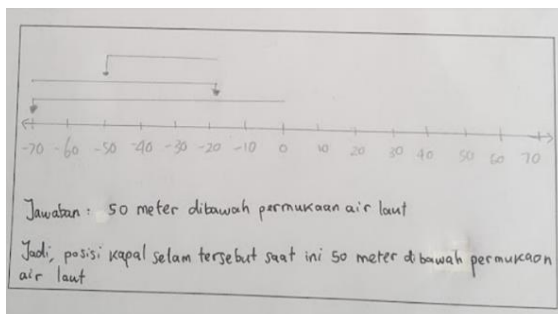 -70 -60 -50 -40 -30 -20 -10 0 10 20 30 40 50 60 70
Jawaban : 50 meter dibawah permukaan air laut
Jadi, posisi kapal selam tersebut saat ini 50 meter dibawah permukaan
air laut